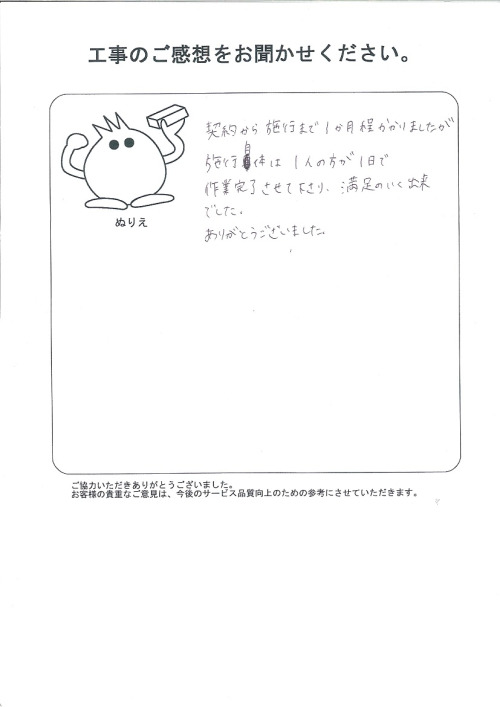 工事のご感想をお聞かせください。
契約から施行まで1か月程かかりましたが
施行自体は1人の方が1日で
作業完了させて下さり、満足のいく出来
でした。
ありがとうございました。
ぬりえ
ご協力いただきありがとうございました。
お客様の貴重なご意見は、今後のサービス品質向上のための参考にさせていただきます。